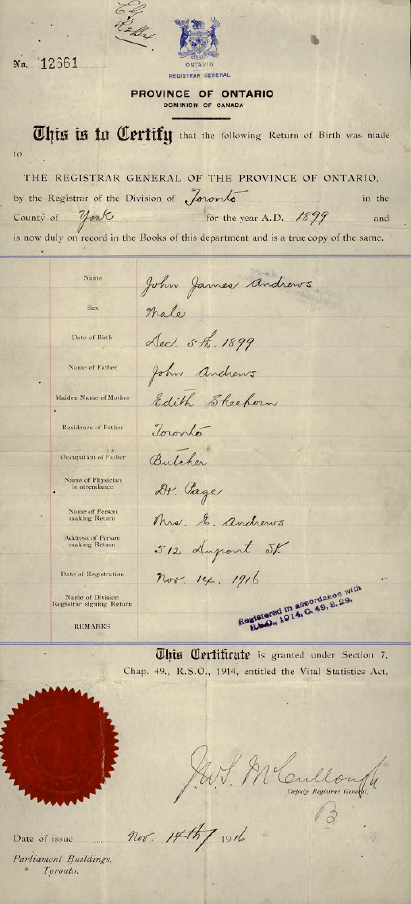 No. 12661
ONTARIO
REGISTRAR GENERAL
PROVINCE OF ONTARIO
DOMINION OF CANADA
This is to Certify that the following Return of Birth was made
to
THE REGISTRAR GENERAL OF THE PROVINCE OF ONTARIO,
by the Registrar of the Division of Toronto in the
County of York for the year A.D. 1899 and
is now duly on record in the Books of this department and is a true copy of the same.
Name John James Andrews
Sex Male
Date of Birth Dec. 5th. 1899
Name of Father John Andrews
Maiden Name of Mother Edith Skeehorn
Residence of Father Toronto
Occupation of Father Butcher
Name of Physician
in attendance Dr. Page
Name of Person
making Return Mrs. E. Andrews
Address of Person
making Return 512 Dupont St.
Date of Registration Nov. 14. 1916
Name of Division
Registrar signing Return
Registered in accordance with
R.S.O., 1914, C. 49, S. 29.
REMARKS
This Certificate is granted under Section 7,
Chap. 49., R.S.O., 1914, entitled the Vital Statistics Act.
J.W.S. McCullough
Deputy Registrar General.
B
Date of issue Nov. 14th 1916
Parliament Buildings,
Toronto.